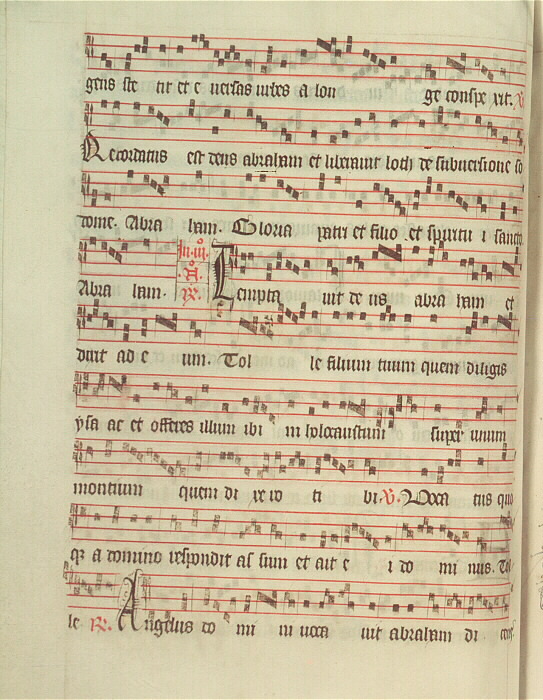 gens ste tit et c uersas urbes a lon ge conspe xit. V
Recordatus est deus abraham et liberauit loth de subuersione so
dome. Abra ham. Gloria patri et filio et spiritu i sancto
Abra ham. R. Tempta uit de us abra ham et
dixit ad e um. Tol le filium tuum quem diligis
ysa ac et offeres illum ibi in holocaustum super unum
montium quem di xe ro ti bi. V. Uoca tus quo
qz a domino respondit as sum et ait e i do mi nus. Tol
le R. Angelus do mi ni uoca uit abraham di cens